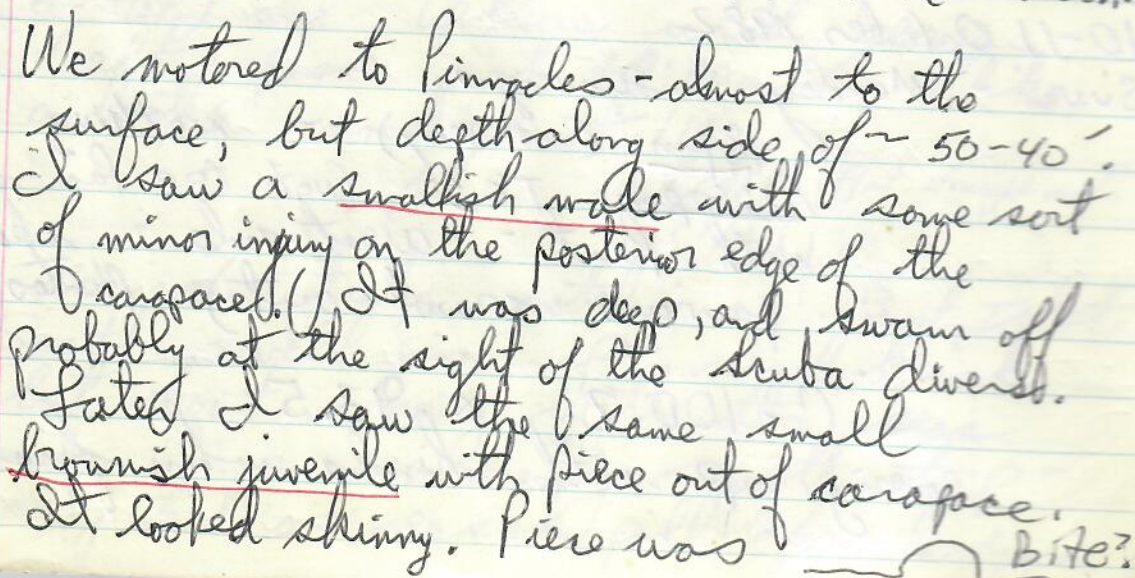 We motored to Pinnacles - almost to the
surface, but depth along side of ~ 50-40'.
I saw a smallish male with some sort
of minor injury on the posterior edge of the
carapace. ( It was deep, and swam off
probably at the sight of the scuba divers.
Later I saw the same small
brownish juvenile with piece out of carapace.
It looked skinny. Piece was
Bite?